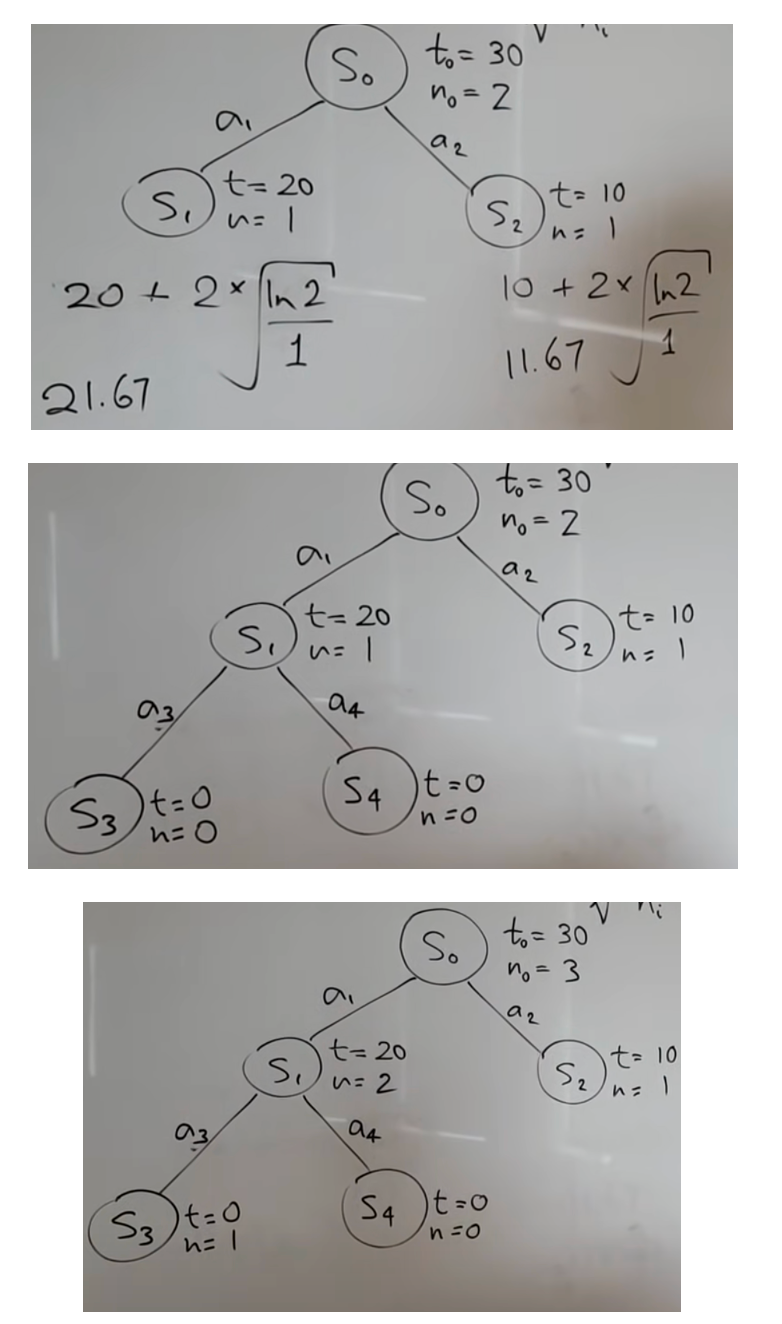 S₀
t₀ = 30
n₀ = 2
a₁
a₂
S₁
t = 20
n = 1
S₂
t = 10
n = 1
20 + 2 × √(ln 2 / 1)
10 + 2 × √(ln 2 / 1)
21.67
11.67
S₀
t₀ = 30
n₀ = 2
a₁
a₂
S₁
t = 20
n = 1
S₂
t = 10
n = 1
a₃
a₄
S₃
t = 0
n = 0
S₄
t = 0
n = 0
S₀
t₀ = 30
n₀ = 3
a₁
a₂
S₁
t = 20
n = 2
S₂
t = 10
n = 1
a₃
a₄
S₃
t = 0
n = 1
S₄
t = 0
n = 0